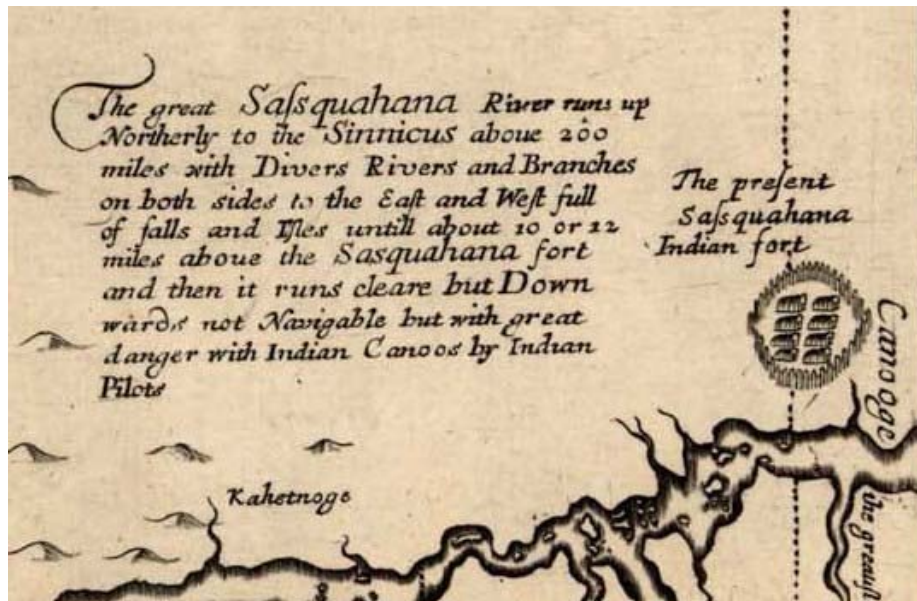 The great Saſsquahana River runs up
Northerly to the Sinnicus aboue 200
miles with Divers Rivers and Branches
on both sides to the Eaſt and Weſt full
of falls and Iſles untill about 10 or 12
miles aboue the Sasquahana fort
and then it runs cleare but Down
wards not Navigable but with great
danger with Indian Canoos by Indian
Pilots
The preſent
Saſsquahana
Indian fort
Canooge
Kahetnoge
the greateſt